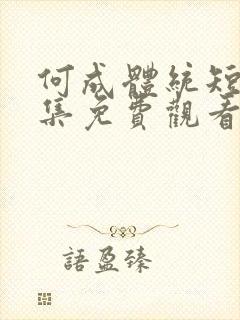 何成體統短
集免費觀看
語盈臻